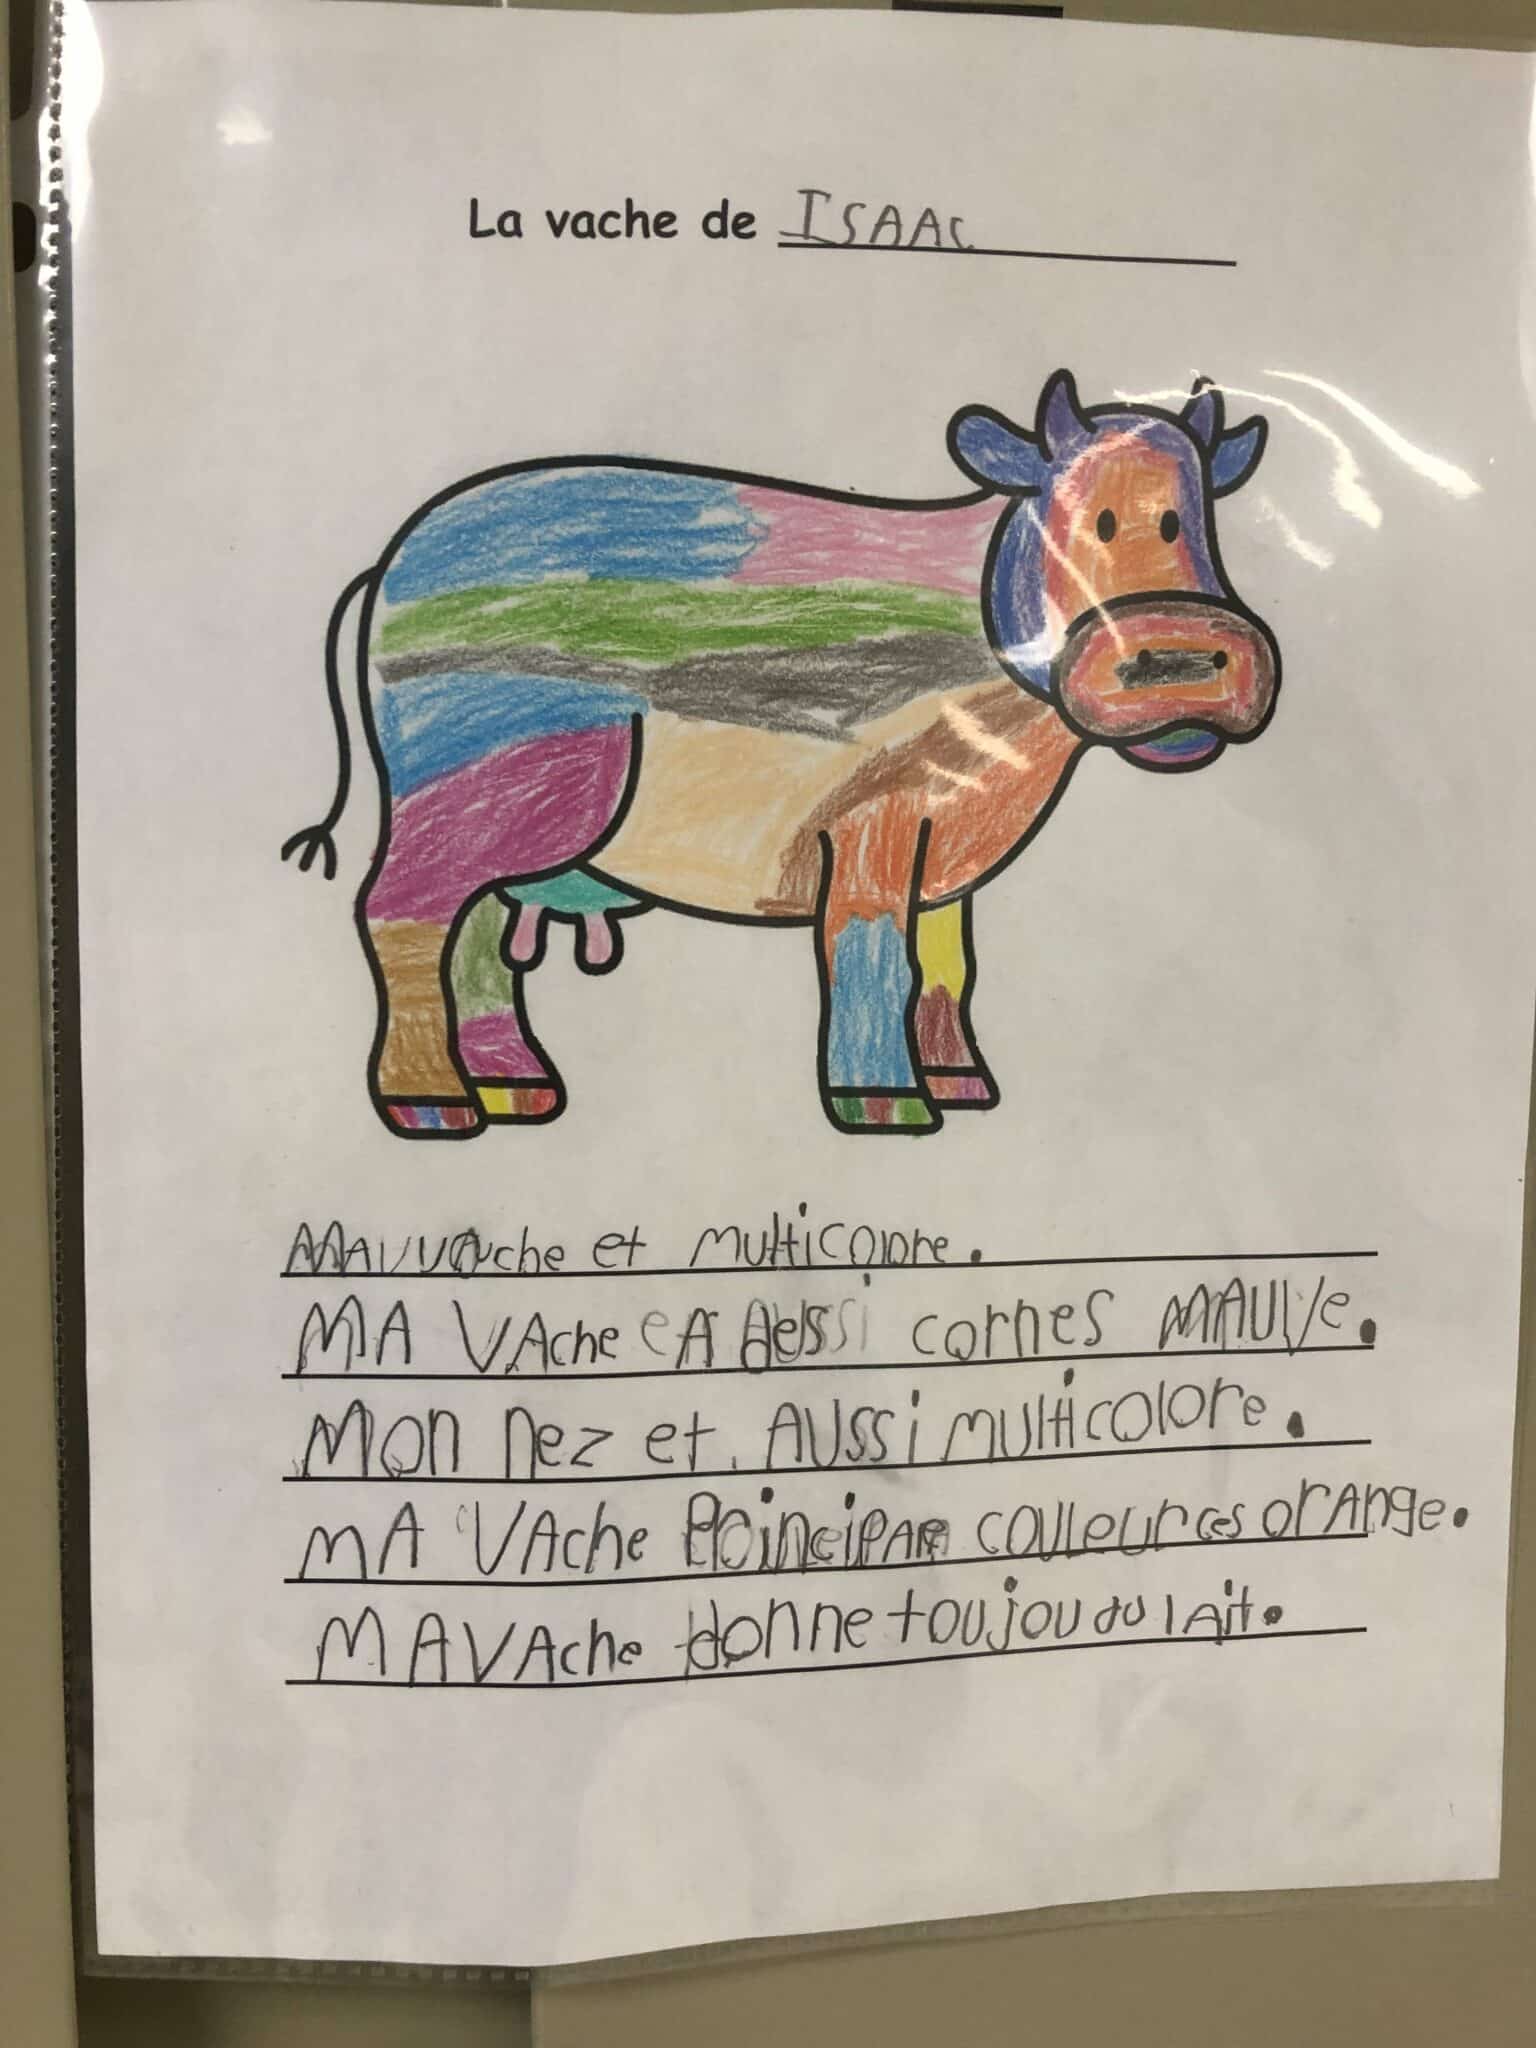 La vache de ISAAC
MA vache et multicolore.
MA VAche A cornes MAUVe.
MON nez et. AUSSi multicolore.
MA VAche couleur ces orANge.
MA VAche donne toujou du lAit.